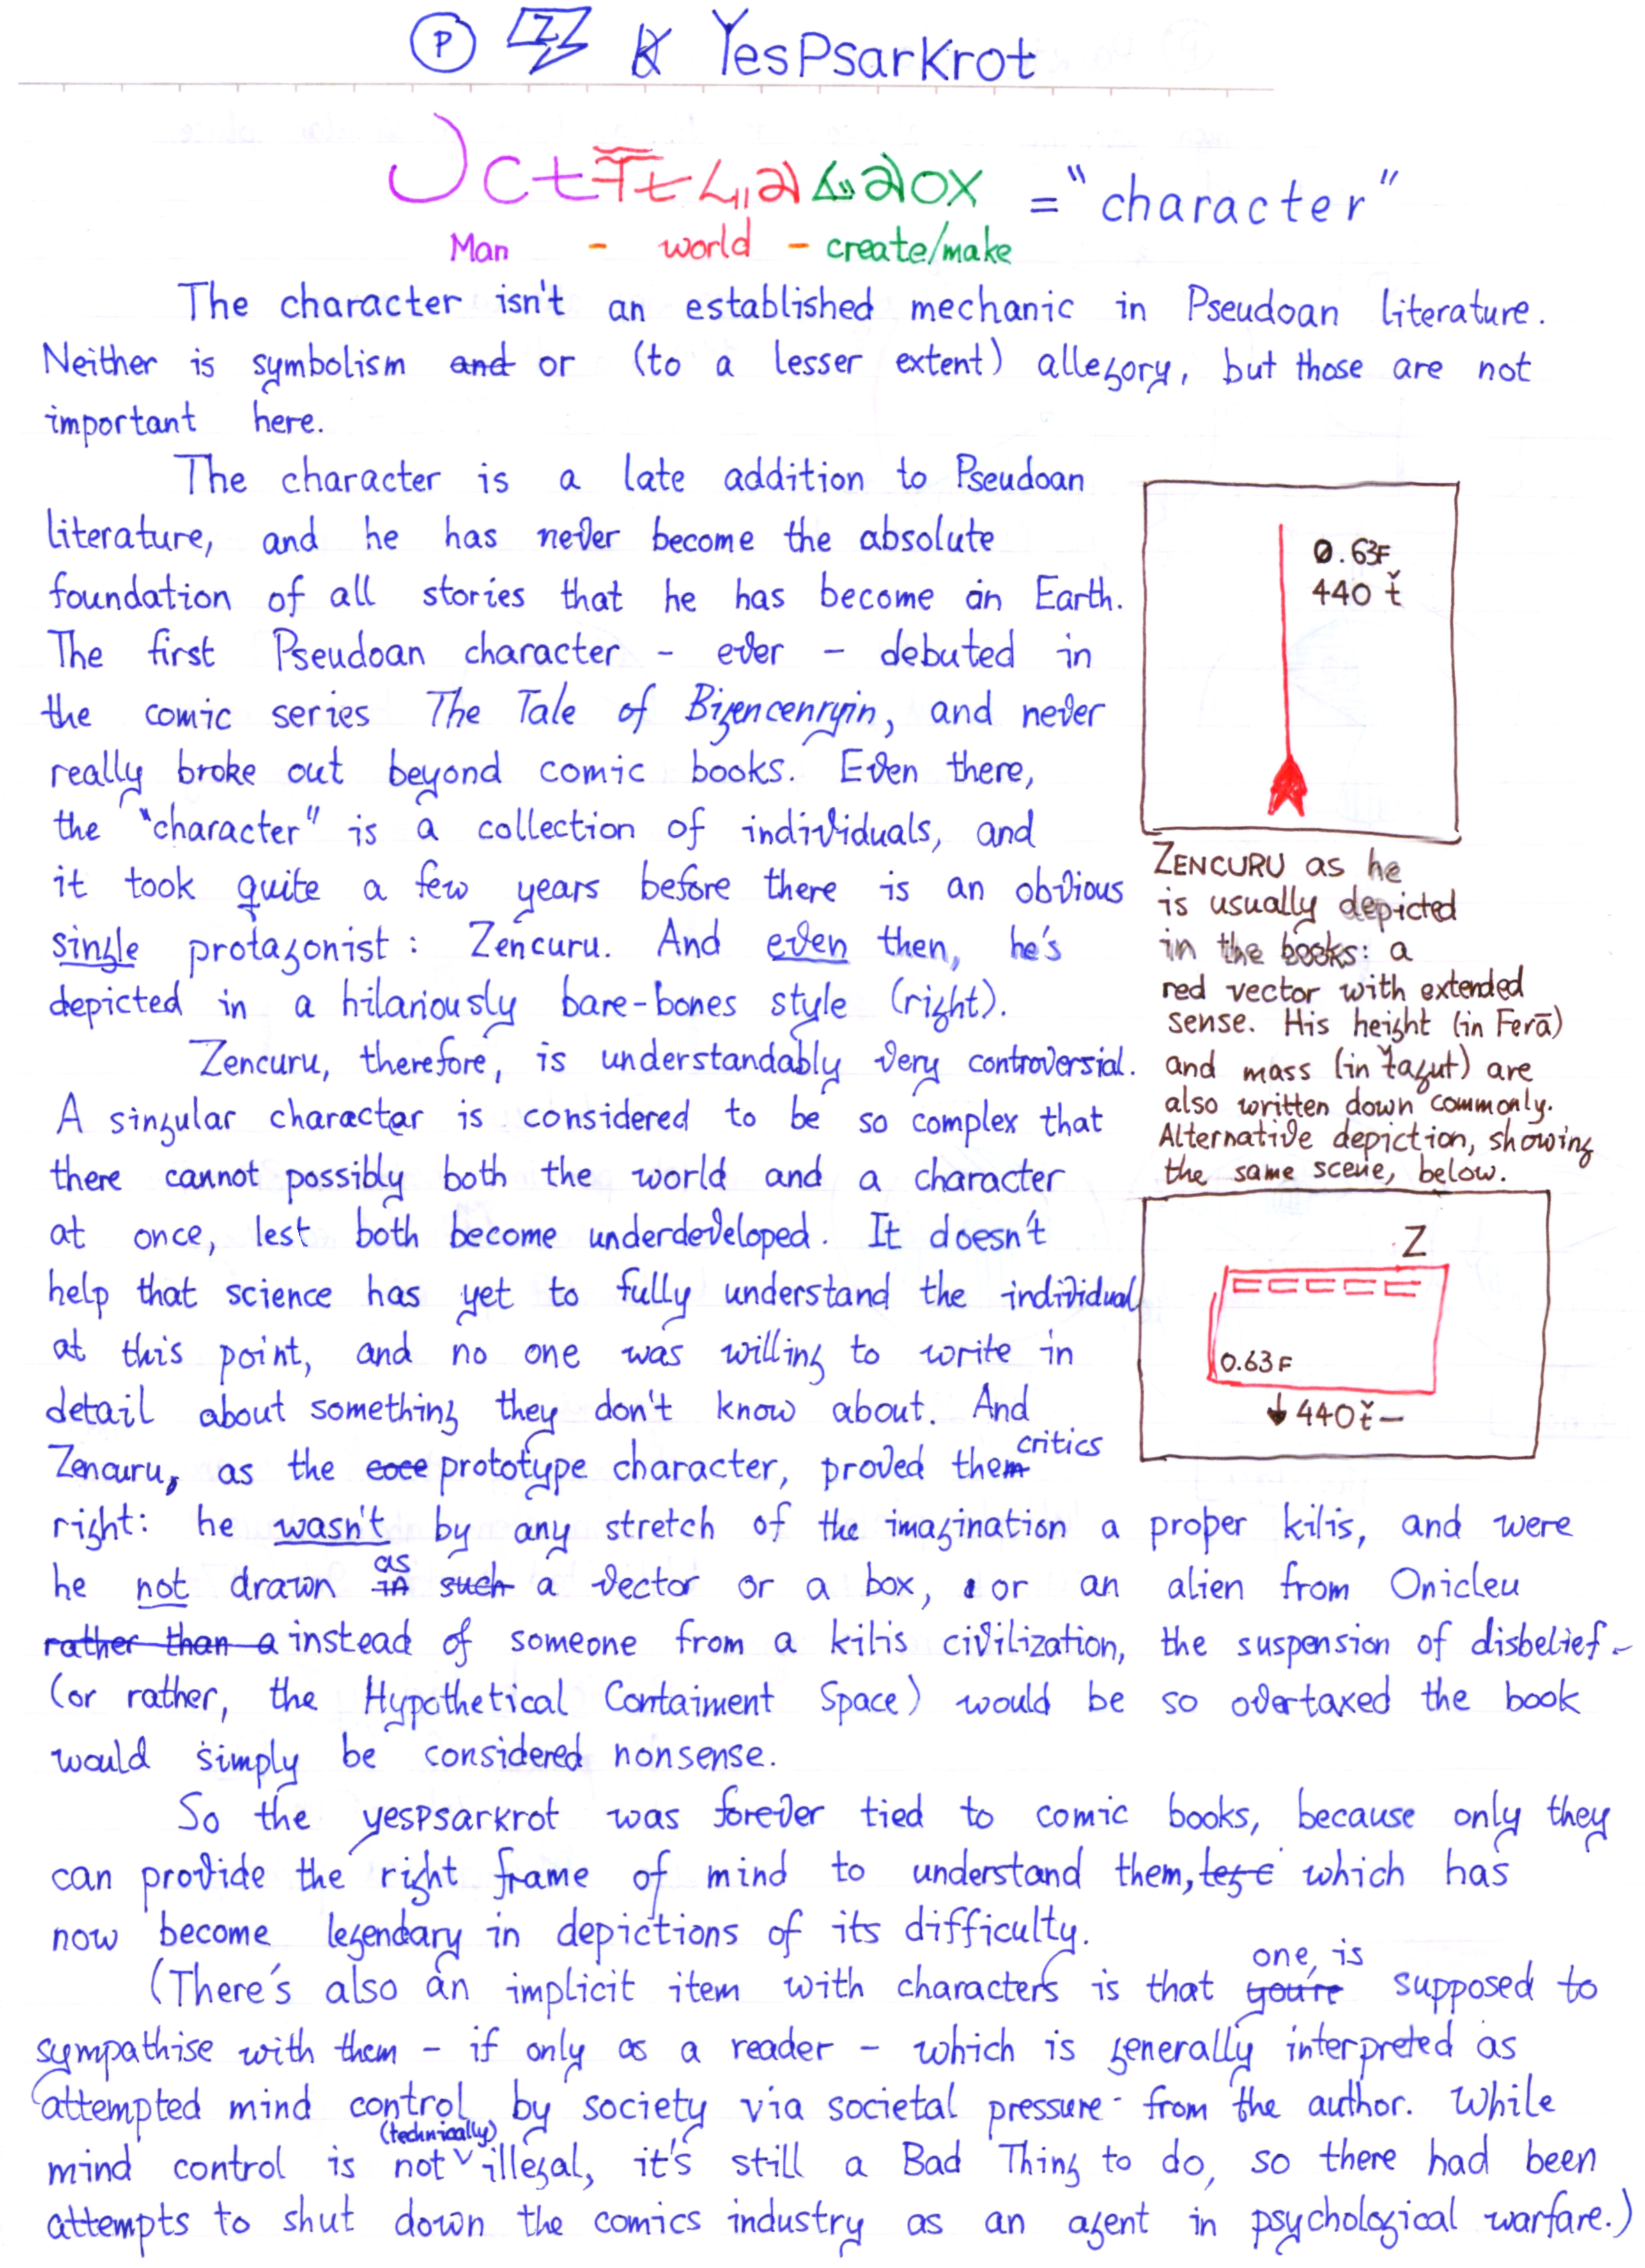 P Z YesPsarKrot
= "character"
Man - world - create/make
The character isn't an established mechanic in Pseudoan literature.
Neither is symbolism and or (to a lesser extent) allegory, but those are not
important here.
The character is a late addition to Pseudoan
literature, and he has never become the absolute
foundation of all stories that he has become in Earth.
The first Pseudoan character - ever - debuted in
the comic series The Tale of Bizencenryin, and never
really broke out beyond comic books. Even there,
the "character" is a collection of individuals, and
it took quite a few years before there is an obvious
single protagonist: Zencuru. And even then, he's
depicted in a hilariously bare-bones style (right).
Zencuru, therefore, is understandably very controversial.
A singular character is considered to be so complex that
there cannot possibly both the world and a character
at once, lest both become underdeveloped. It doesn't
help that science has yet to fully understand the individual
at this point, and no one was willing to write in
detail about something they don't know about. And
Zencuru, as the prototype character, proved them critics
right: he wasn't by any stretch of the imagination a proper kilis, and were
he not drawn in as such a vector or a box, or an alien from Onicleu
rather than a instead of someone from a kilis civilization, the suspension of disbelief-
(or rather, the Hypothetical Contaiment Space) would be so overtaxed the book
would simply be considered nonsense.
So the yesPsarkrot was forever tied to comic books, because only they
can provide the right frame of mind to understand them, which has
now become legendary in depictions of its difficulty.
(There's also an implicit item with characters is that you're one, is supposed to
sympathise with them - if only as a reader - which is generally interpreted as
attempted mind control by society via societal pressure - from the author. While
mind control is not (technically) illegal, it's still a Bad Thing to do, so there had been
attempts to shut down the comics industry as an agent in psychological warfare.)
0.63F
440 ť
ZENCURU as he
is usually depicted
in the books: a
red vector with extended
sense. His height (in Ferā)
and mass (in ťagut) are
also written down commonly.
Alternative depiction, showing
the same scene, below.
Z
0.63 F
↓ 440 ť -